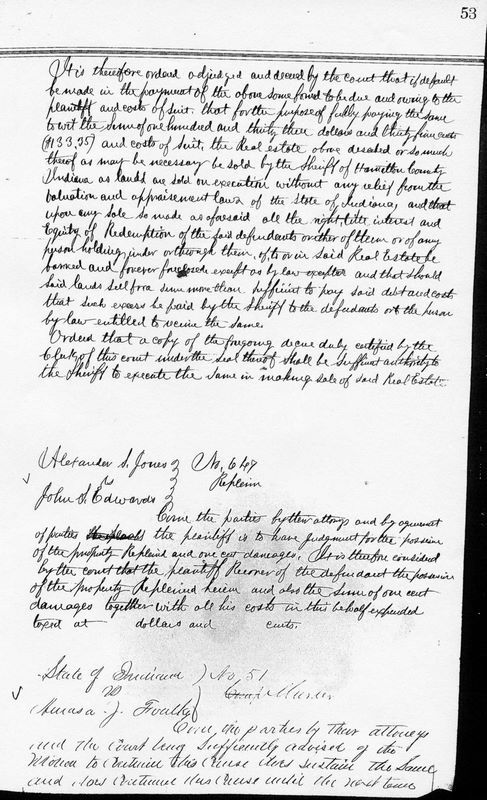 53
It is therefore ordered adjudged and decreed by the court that if default
be made in the payment of the above some found to be due and owing to the
plaintiff and costs of suit. that for the purpose of fully paying the same
to wit the sum of one hundred and thirty three dollars and thirty five cents
($133.35) and costs of suit, the Real estate above described or so much
thereof as may be necessary be sold by the Sheriff of Hamilton County
Indiana as lands are sold on execution without any relief from the
valuation and appraisement laws of the State of Indiana, and that
upon any sale so made as aforesaid all the right, title, interest and
Equity of Redemption of the said defendants or either of them or of any
person holding under or through them, of, to or in said Real Estate be
barred and forever foreclosed except as by law and that should
said lands sell for a sume more than sufficient to pay said debt and costs
that such excess be paid by the Sheriff to the defendants or the person
by law entitled to receive the same.
Ordered that a copy of the foregoing decree duly certified by the
Clerk of this court under the seal thereof shall be sufficient authority to
the Sheriff to execute the same in making sale of said Real Estate.
Alexander S. Jones } No. 649
vs } Replevin
John S. Edwards }
Come the parties by their attorneys and by agreement
of parties the plaintiff is to have Judgment for the possession
of the property Replevied and one cent damages. It is therefore considered
by the court that the plaintiff Recover of the defendant the possession
of the property Replevied herein and also the sum of one cent
damages together with all his costs in this behalf expended
taxed at dollars and cents.
State of Indiana ) No. 51
vs )
Amasa J. )
Come the parties by their attorneys
and the Court being sufficiently advised of the
Motion to Continue this Cause does sustain the Same
and does Continue this Cause until the next term